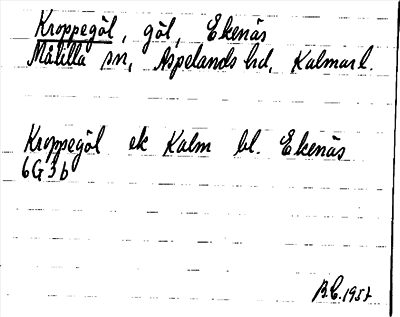 Kroppegöl, göl, Ekenäs
Målilla sn, Aspelands hd, Kalmar l.
Kroppegöl ek Kalm bl. Ekenäs
6G3b